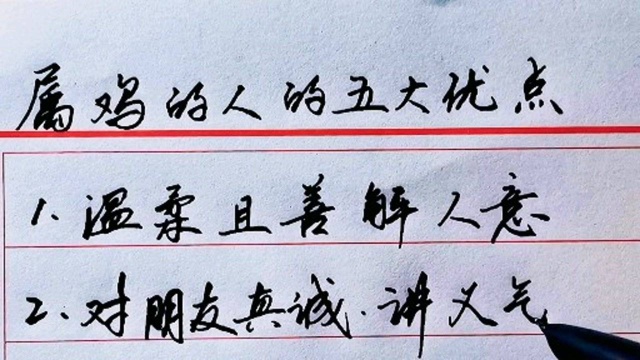 属鸡的人的五大优点
1.温柔且善解人意
2.对朋友真诚.讲义气